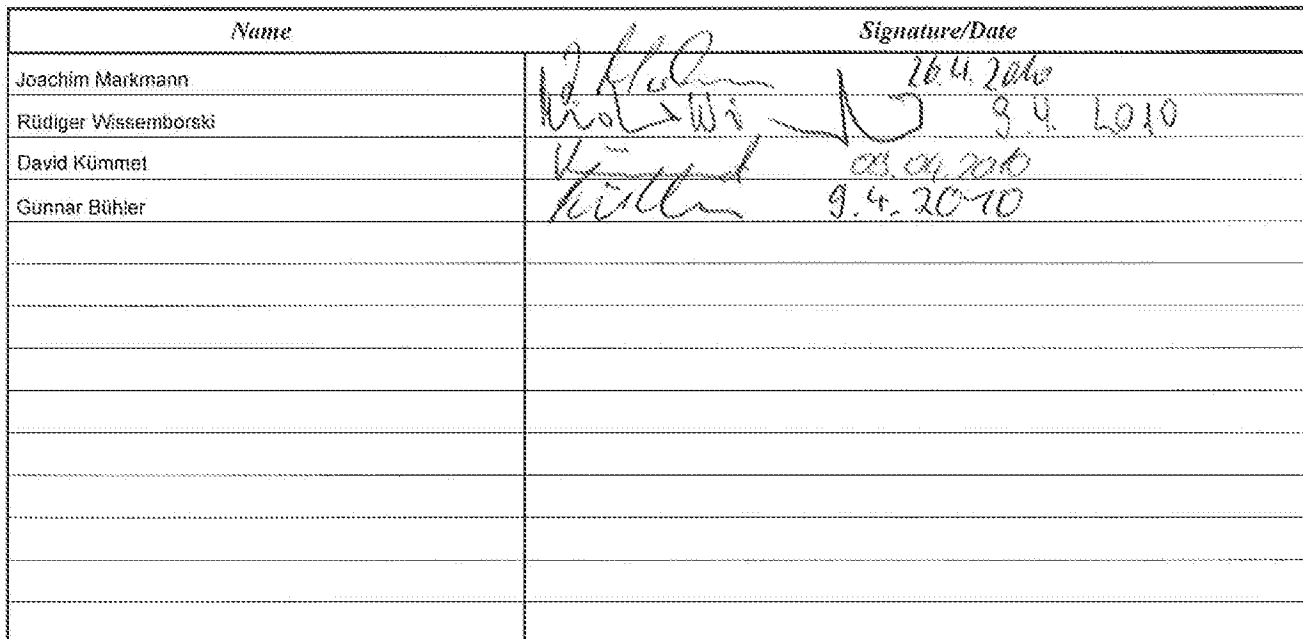 Name Signature/Date
Joachim Markmann 26.4.2010
Rüdiger Wissemborski 9.4. 2010
David Kümmet 09.04.2010
Gunnar Bühler 9.4.2010